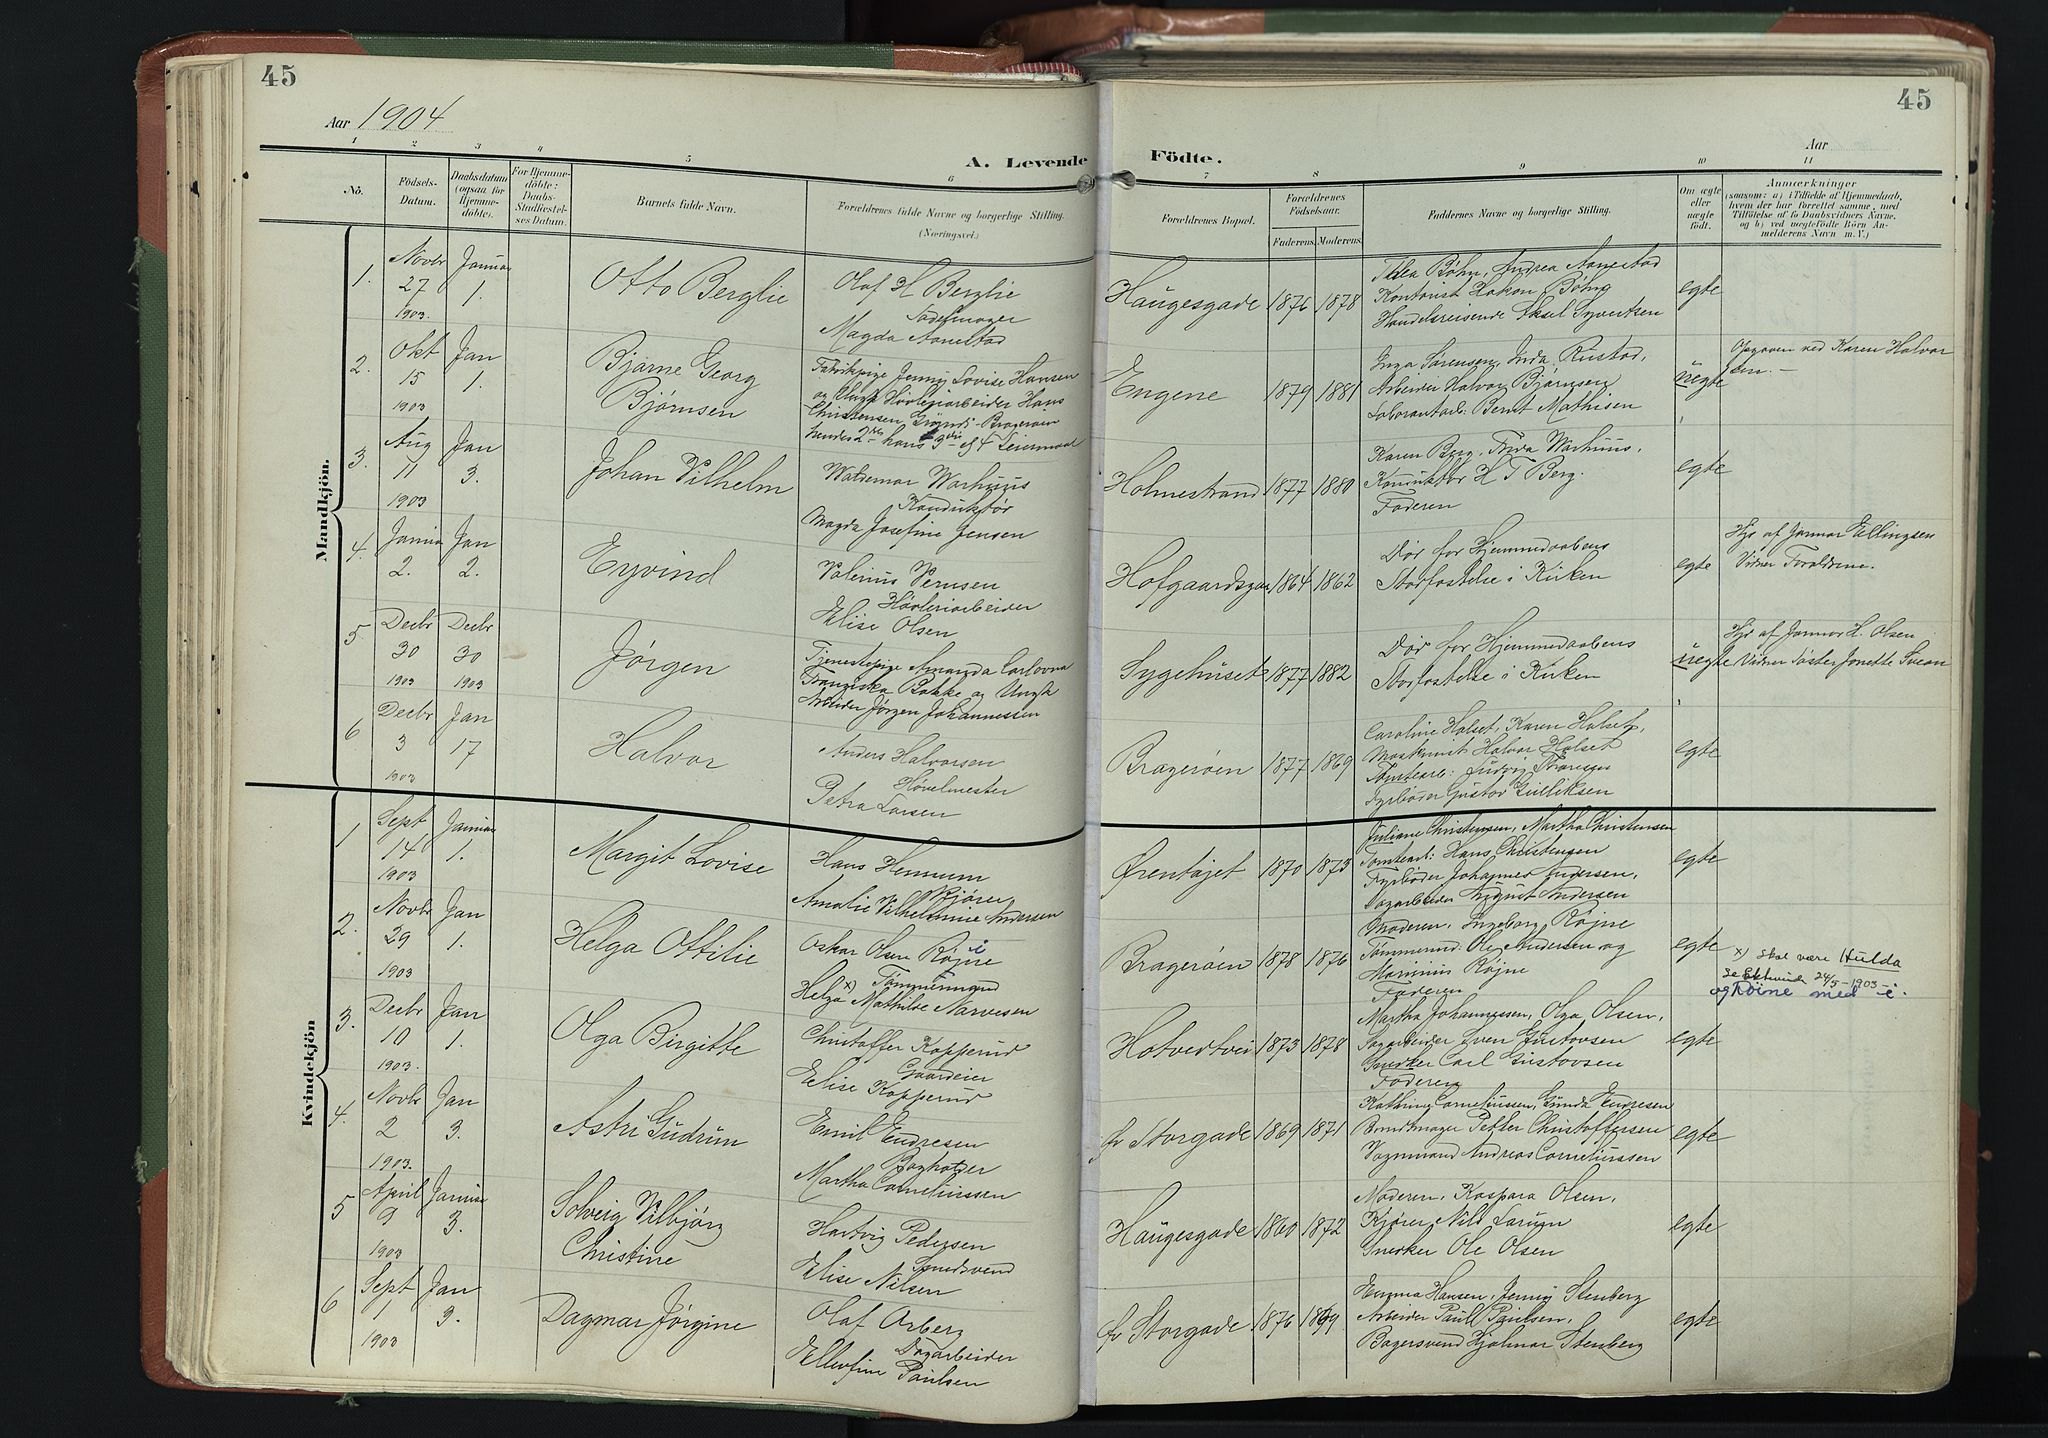 45
45
Aar 1904
Aar
A. Levende Födte.
1 2 3 4 5 6 7 8 9 10 11
No.
Födsels-
Datum.
Daabsdatum
(ogsaa for
Hjemme-
döbte).
For Hjemme-
döbte:
Daabs-
Stadfæstel-
ses Datum.
Barnets fulde Navn.
Forældrenes fulde Navne og borgerlige Stilling.
(Næringsvei.)
Forældrenes Bopæl.
Forældrenes
Födselsaar.
Faderens. Moderens.
Faddernes Navne og borgerlige Stilling.
Om ægte
eller
uægte
født.
Anmærkninger
(saasom: a) i Tilfælde af Hjemmedaab,
hvem der har forrettet samme, med
Tilföielse af to Daabsvidners Navne.
og b) ved uægtefödte Börn An-
melderens Navn m. V.)
Mandkjön.
1. Novbr 27 1903. Januar 1.
Otto Berglie
Olaf H Berglie
Sadelmager
Magda Aanestad
Haugesgade 1876 1878
Thea Bøhn, Andrea Aanestad
Kontorist Hakon Bøhng
Handelsreisende Aksel Syvertsen
egte
2. Okt 15 1903 Jan 1.
Bjarne Georg
Bjørnsen
Fabrikpige Jenny Lovise Hansen
og Ungk Høvleriarbeider Hans
Christensen Bragerøen
hendes 2det hans 3die og 4 Leiermaal
Engene 1879 1881
Inga Sørensen, Inda Rustad,
Arbeider Halvor Bjørnsen
Laborantarb: Bernt Mathisen
uegte
Opgaven ved Karen Halvor
sen. -
3. Aug 11 1903 Jan 3.
Johan Vilhelm
Waldemar Warhuus
Konduktør
Magda Josefine Jensen
Holmestrand 1877 1880
Karen Berg, Frida Warhuus,
Konduktør H T Berg.
Faderen
egte
4. Januar 2. Jan 2.
Eyvind
Valerius Vernsen
Høvleriarbeider
Elise Olsen
Hofgaardsgad 1864 1862
Dør før Hjemmedaabens
Stadfæstelse i Kirken
egte
Hjd af Jormor Ellingsen
Vidner Forældrene.
5. Decbr 30 1903 Decbr 30 1903
Jørgen
Tjenestepige Amanda Carlovna
Franziska Bakke og Ungk
Arbeider Jørgen Johannessen
Sygehuset 1877 1882
Dør før Hjemmedaabens
Stadfæstelse i Kirken
uegte
Hjd af Jormor H. Olsen
Vidner Søster Jonette Svean
6 Decbr 3 1903 Jan 17
Halvor
Anders Halvorsen
Høvelmester
Petra Larsen
Bragerøen 1877 1869
Caroline Holset, Karen Holset,
Maskinist Halvor Holset
Tomtearb: Ludvig Thoresen
Fyrbøder Gustav Gulliksen
egte
Kvindekjön
1 Sept 14 1903 Januar 1.
Margit Lovise
Hans Hennum
Kjører
Amalie Vilhelmine Andersen
Ørentøjet 1870 1873
Juliane Christensen, Martha Christensen
Tomtearb: Hans Christensen
Fyrbøder Johannes Andersen,
Dagarbeider August Andersen
egte
2. Novbr 29 1903 Jan 1.
Helga Ottilie
Oskar Olsen Røjne i
x) Tømmermand
Helga Mathilde Narvesen
Bragerøen 1878 1876
Moderen, Ingeborg Røjne
Tømmermd: Ole Andersen og
Marinius Røjne
Faderen
egte
x) skal være Hulda
se 24/5-1903-
og Röine med i.
3. Decbr 10 1903. Jan 1.
Olga Birgitte
Christoffer Kopperud
Gaardeier
Elise Kopperud
Hotvedtvei 1873 1878
Martha Johannessen, Olga Olsen,
Sagarbeider Sven Gustavsen
Snedker Carl Gustavsen
Faderen
egte
4. Novbr 2 1903. Jan 3.
Astri Gudrun
Emil Endresen
Bogholder
Martha Corneliussen
fv Storgade 1869 1871
Kathrine Corneliussen, Gunda Endresen
Bundtmager Petter Christoffersen
Vognmand Andreas Corneliussen
egte
5 April 9 1903 Januar 3.
Solveig Vilbjørg
Christine
Hartvig Pedersen
Smedsvend
Elise Nilsen
Haugesgade 1860 1872
Moderen, Kaspara Olsen,
Kjører Nils Larsen
Snedker Ole Olsen
egte
6 Sept 1 1903 Jan 3.
Dagmar Jørgine
Olaf Arberg
Dagarbeider
Ellefine Paulsen
fv Storgade 1876 1879
Emma Hansen, Jenny Stenberg
Arbeider Paul Paulsen,
Bagersvend Hjalmar Stenberg
egte